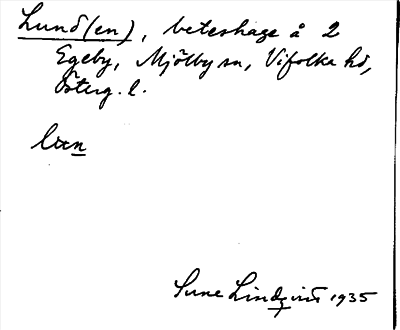 Lund(en), beteshage å 2
Egeby, Mjölby sn, Vifolka hd,
Österg. l.
lun
Sune Lindqvist 1935